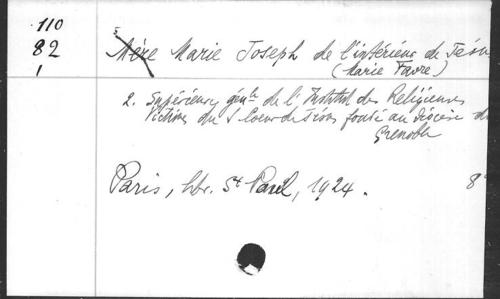 110
82
1
Mère Marie Joseph de l'intérieur de Jésu
(Marie Favre)
2. Supérieure génle de l'Institut des Religieuses
Victimes du S Coeur de Jésus fondé au Diocèse de
Grenoble
Paris, libr. St Paul, 1924.
8°